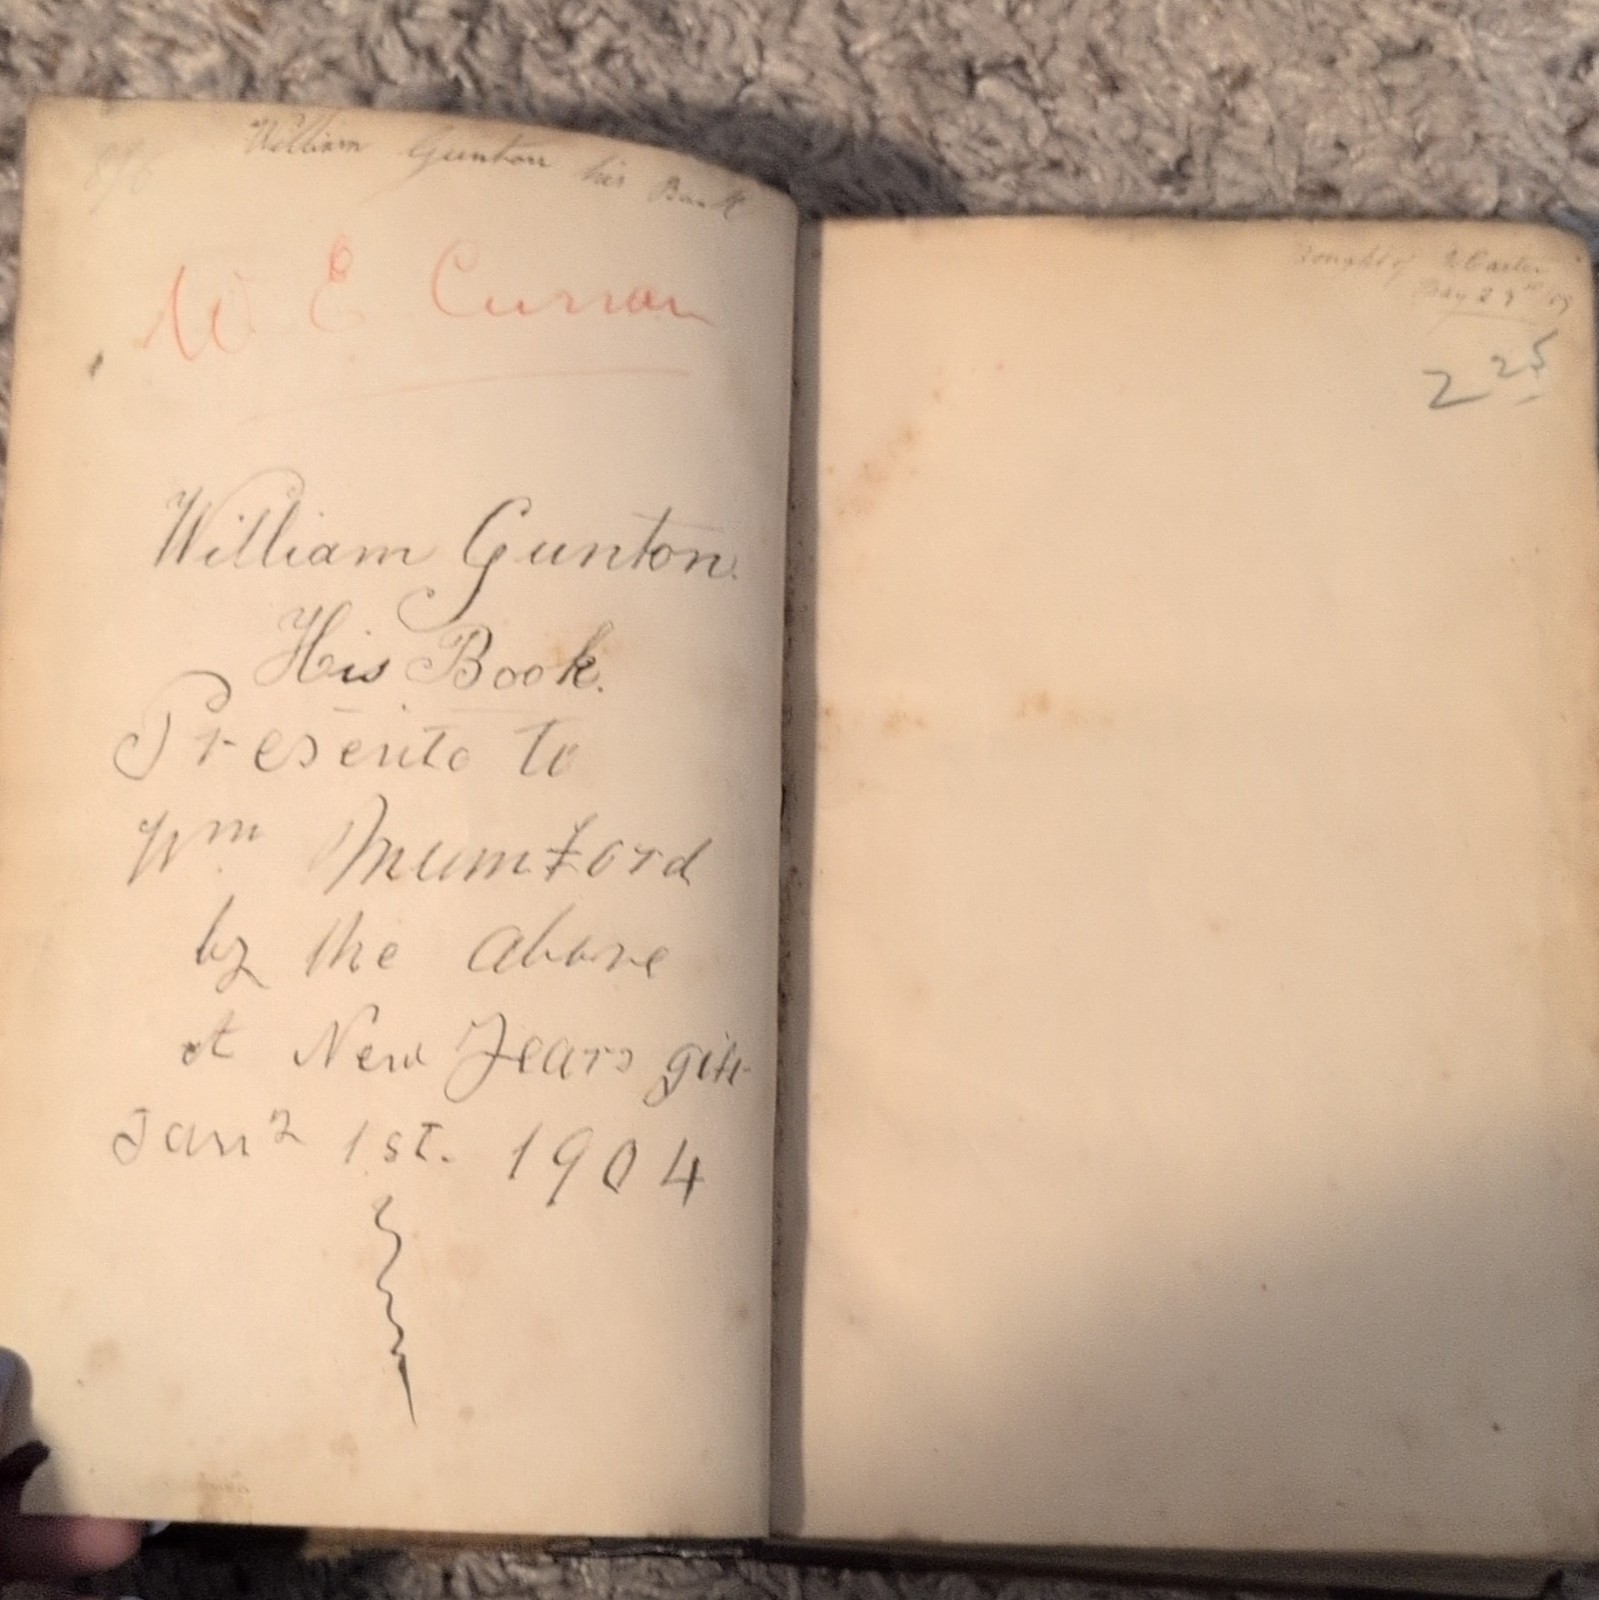 William Gunton his Book
W E Curran
William Gunton.
His Book.
Presente to
Wm Mumford
by the above
at New Years gift
Jany 1st. 1904
Bought of
May 29th
2 25